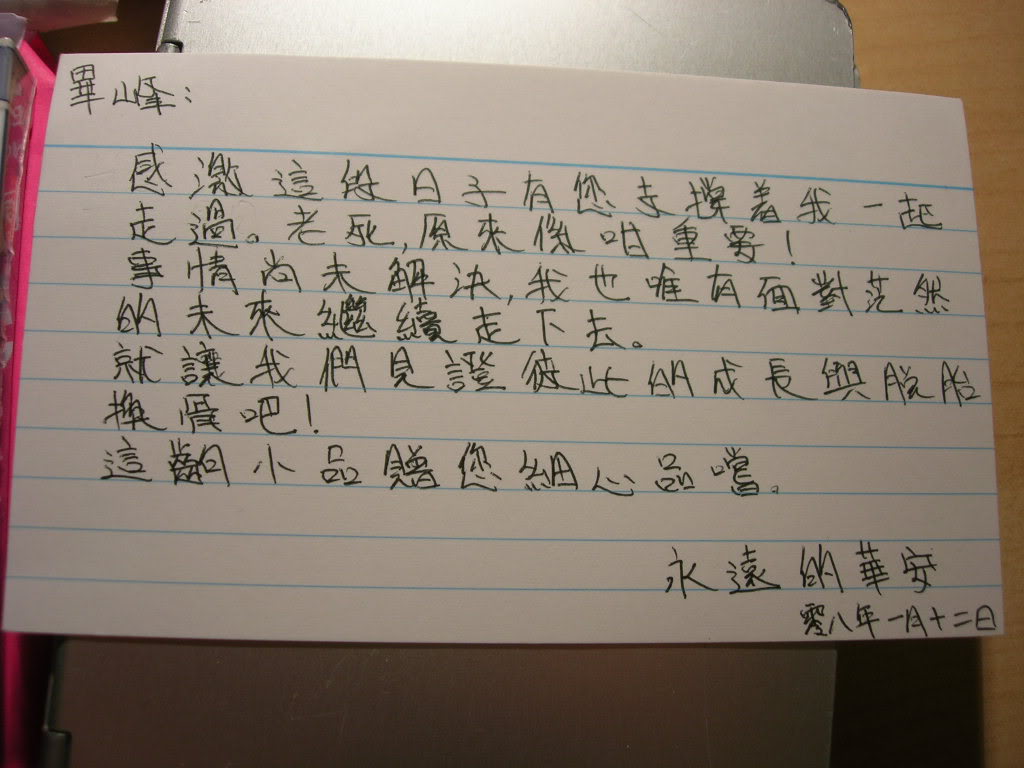 畢峰：
感激這段日子有您支撐着我一起
走過。老死，原來係咁重要！
事情尚未解決，我也唯有面對茫然
的未來繼續走下去。
就讓我們見證彼此的成長與脫胎
換骨吧！
這小品贈您細心品嚐。
永遠的華安
零八年一月十二日